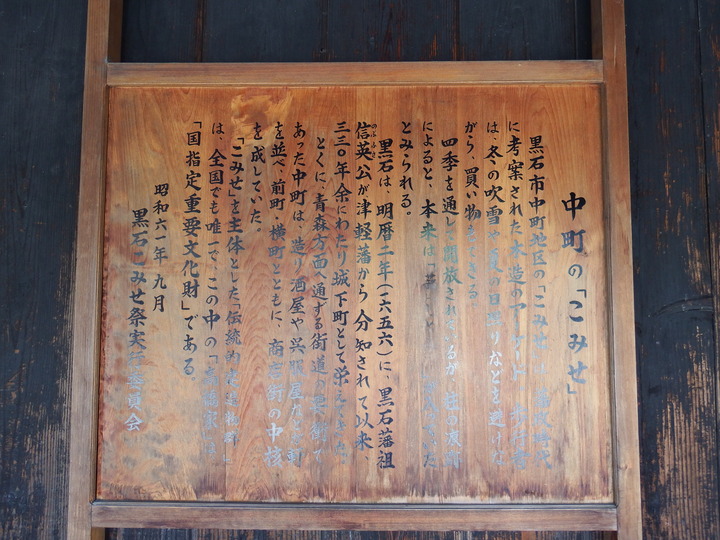 中町の「こみせ」
黒石市中町地区の「こみせ」は、藩政時代
に考案された木造のアーケード。歩行者
は、冬の吹雪や夏の日照りなどを避けな
がら、買い物もできる。
四季を通して開放されているが、柱の
によると、本来は、
とみられる。
黒石は、明暦二年(一六五六)に、黒石藩祖
信英公が津軽藩から分知されて以来、
のぶふさ
三三〇年余にわたり城下町として栄えてきた。
とくに、青森方面へ通ずる街道の要衝で
あった中町は、造り酒屋や呉服屋などが軒
を並べ、前町・横町とともに、商店街の中核
を成していた。
「こみせ」を主体とした「伝統的建造物群」
は、全国でも唯一で、この中の「高橋家」は、
「国指定重要文化財」である。
昭和六一年 九月
黒石こみせ祭実行委員会